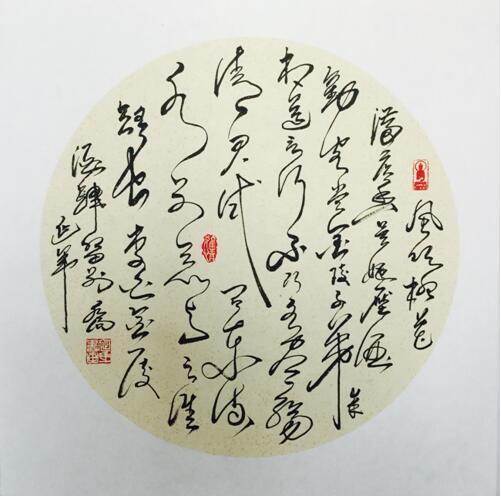 风吹柳花
满店香吴姬压酒
劝客尝金陵子弟来
相送欲行不行各尽觞
请君试问东流
水别意与之谁
短长李白金陵
酒肆留别